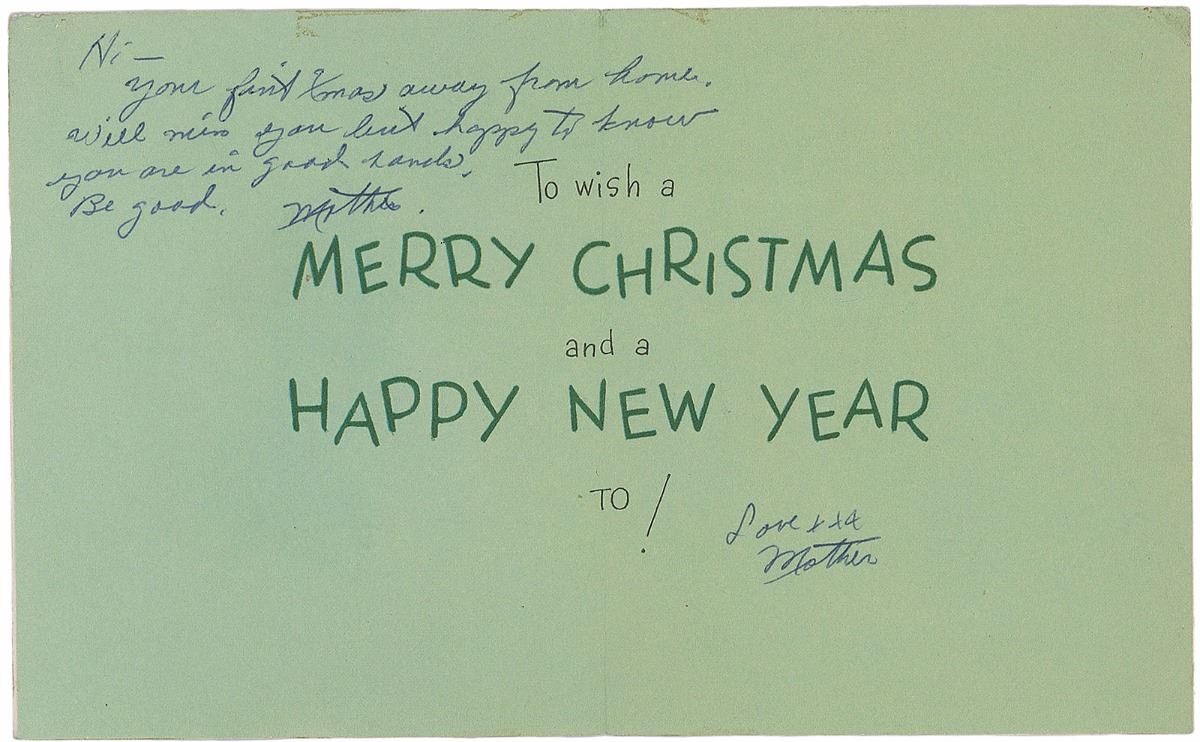 Hi —
Your first Xmas away from home.
Will miss you but happy to know
you are in good hands.
Be good. Mother.
To wish a
MERRY CHRISTMAS
and a
HAPPY NEW YEAR
TO !
Love xxx
Mother